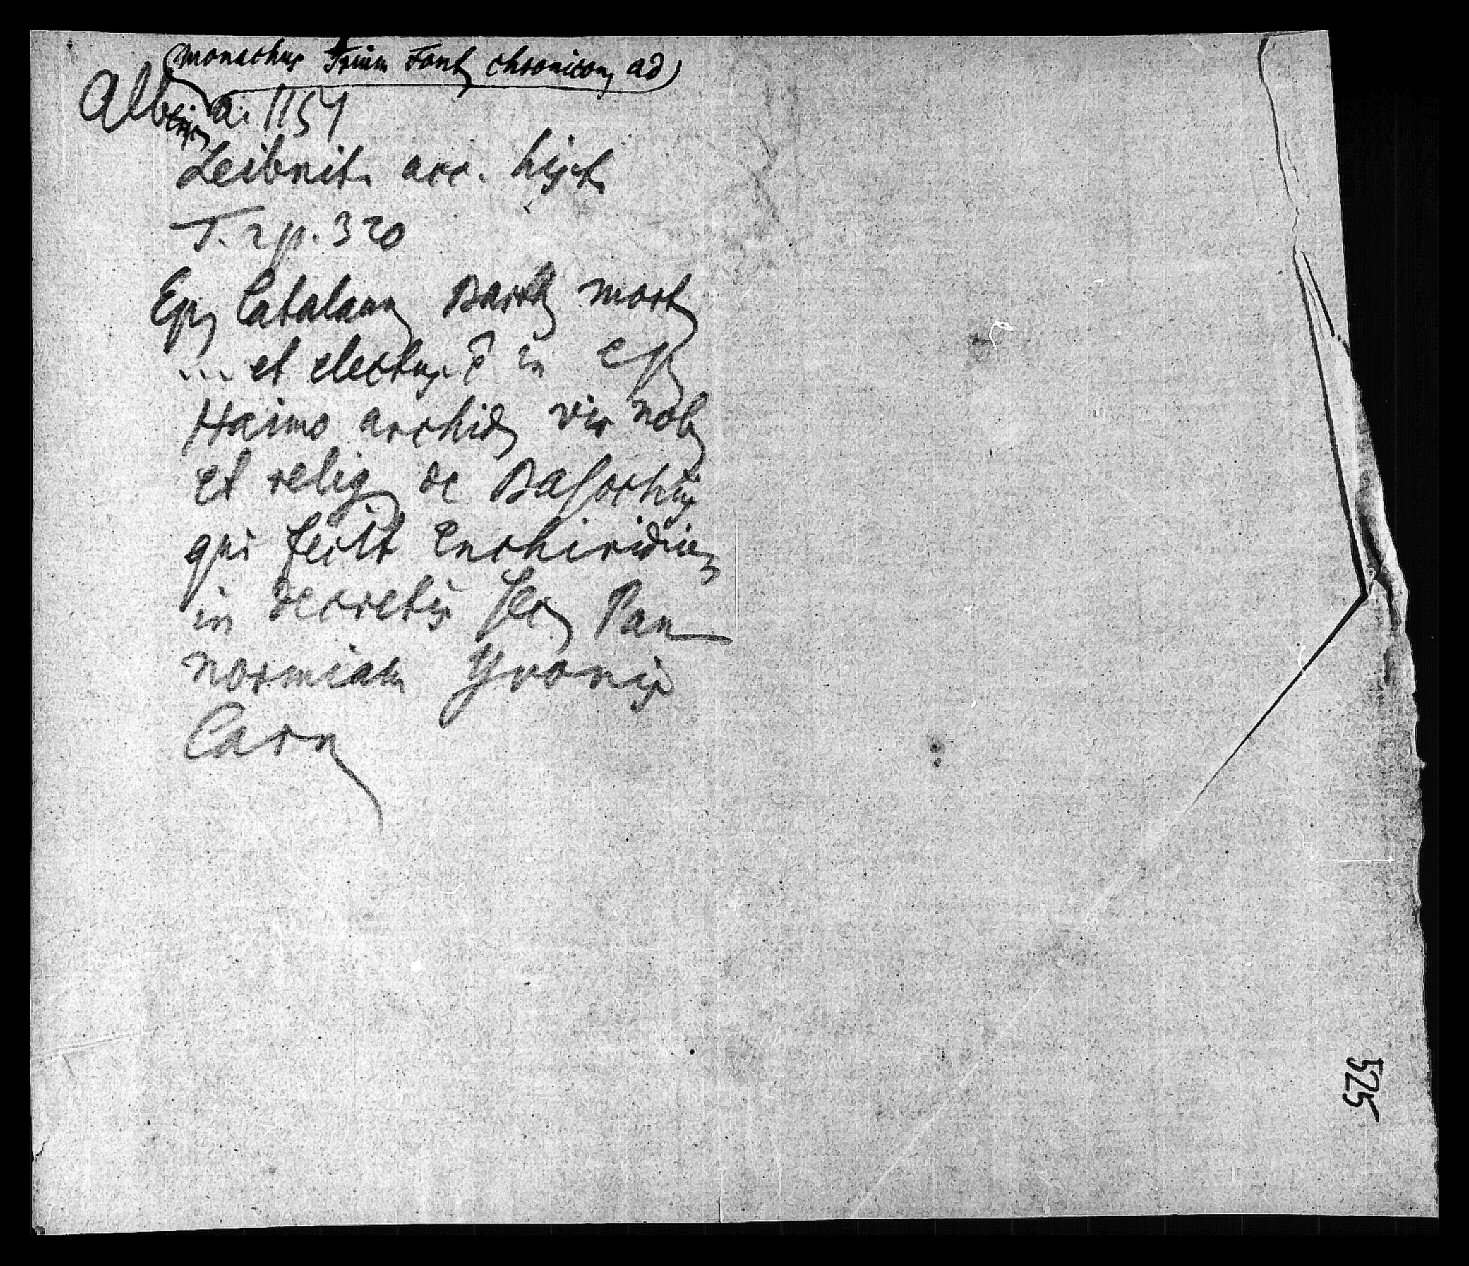 (monachus Trium Font. chronicon ad)
Alberic. a. 1151
Leibnit. acc. hist.
T. 2 p. 320
Ep. Catalaun. Barth. mort.
... et electus ē in ep.
Haimo archid. vir nob.
et relig. de Basochiis
qui fecit Enchiridion
in decretis sec. Pan
normiam Yvonis
Carn.
525